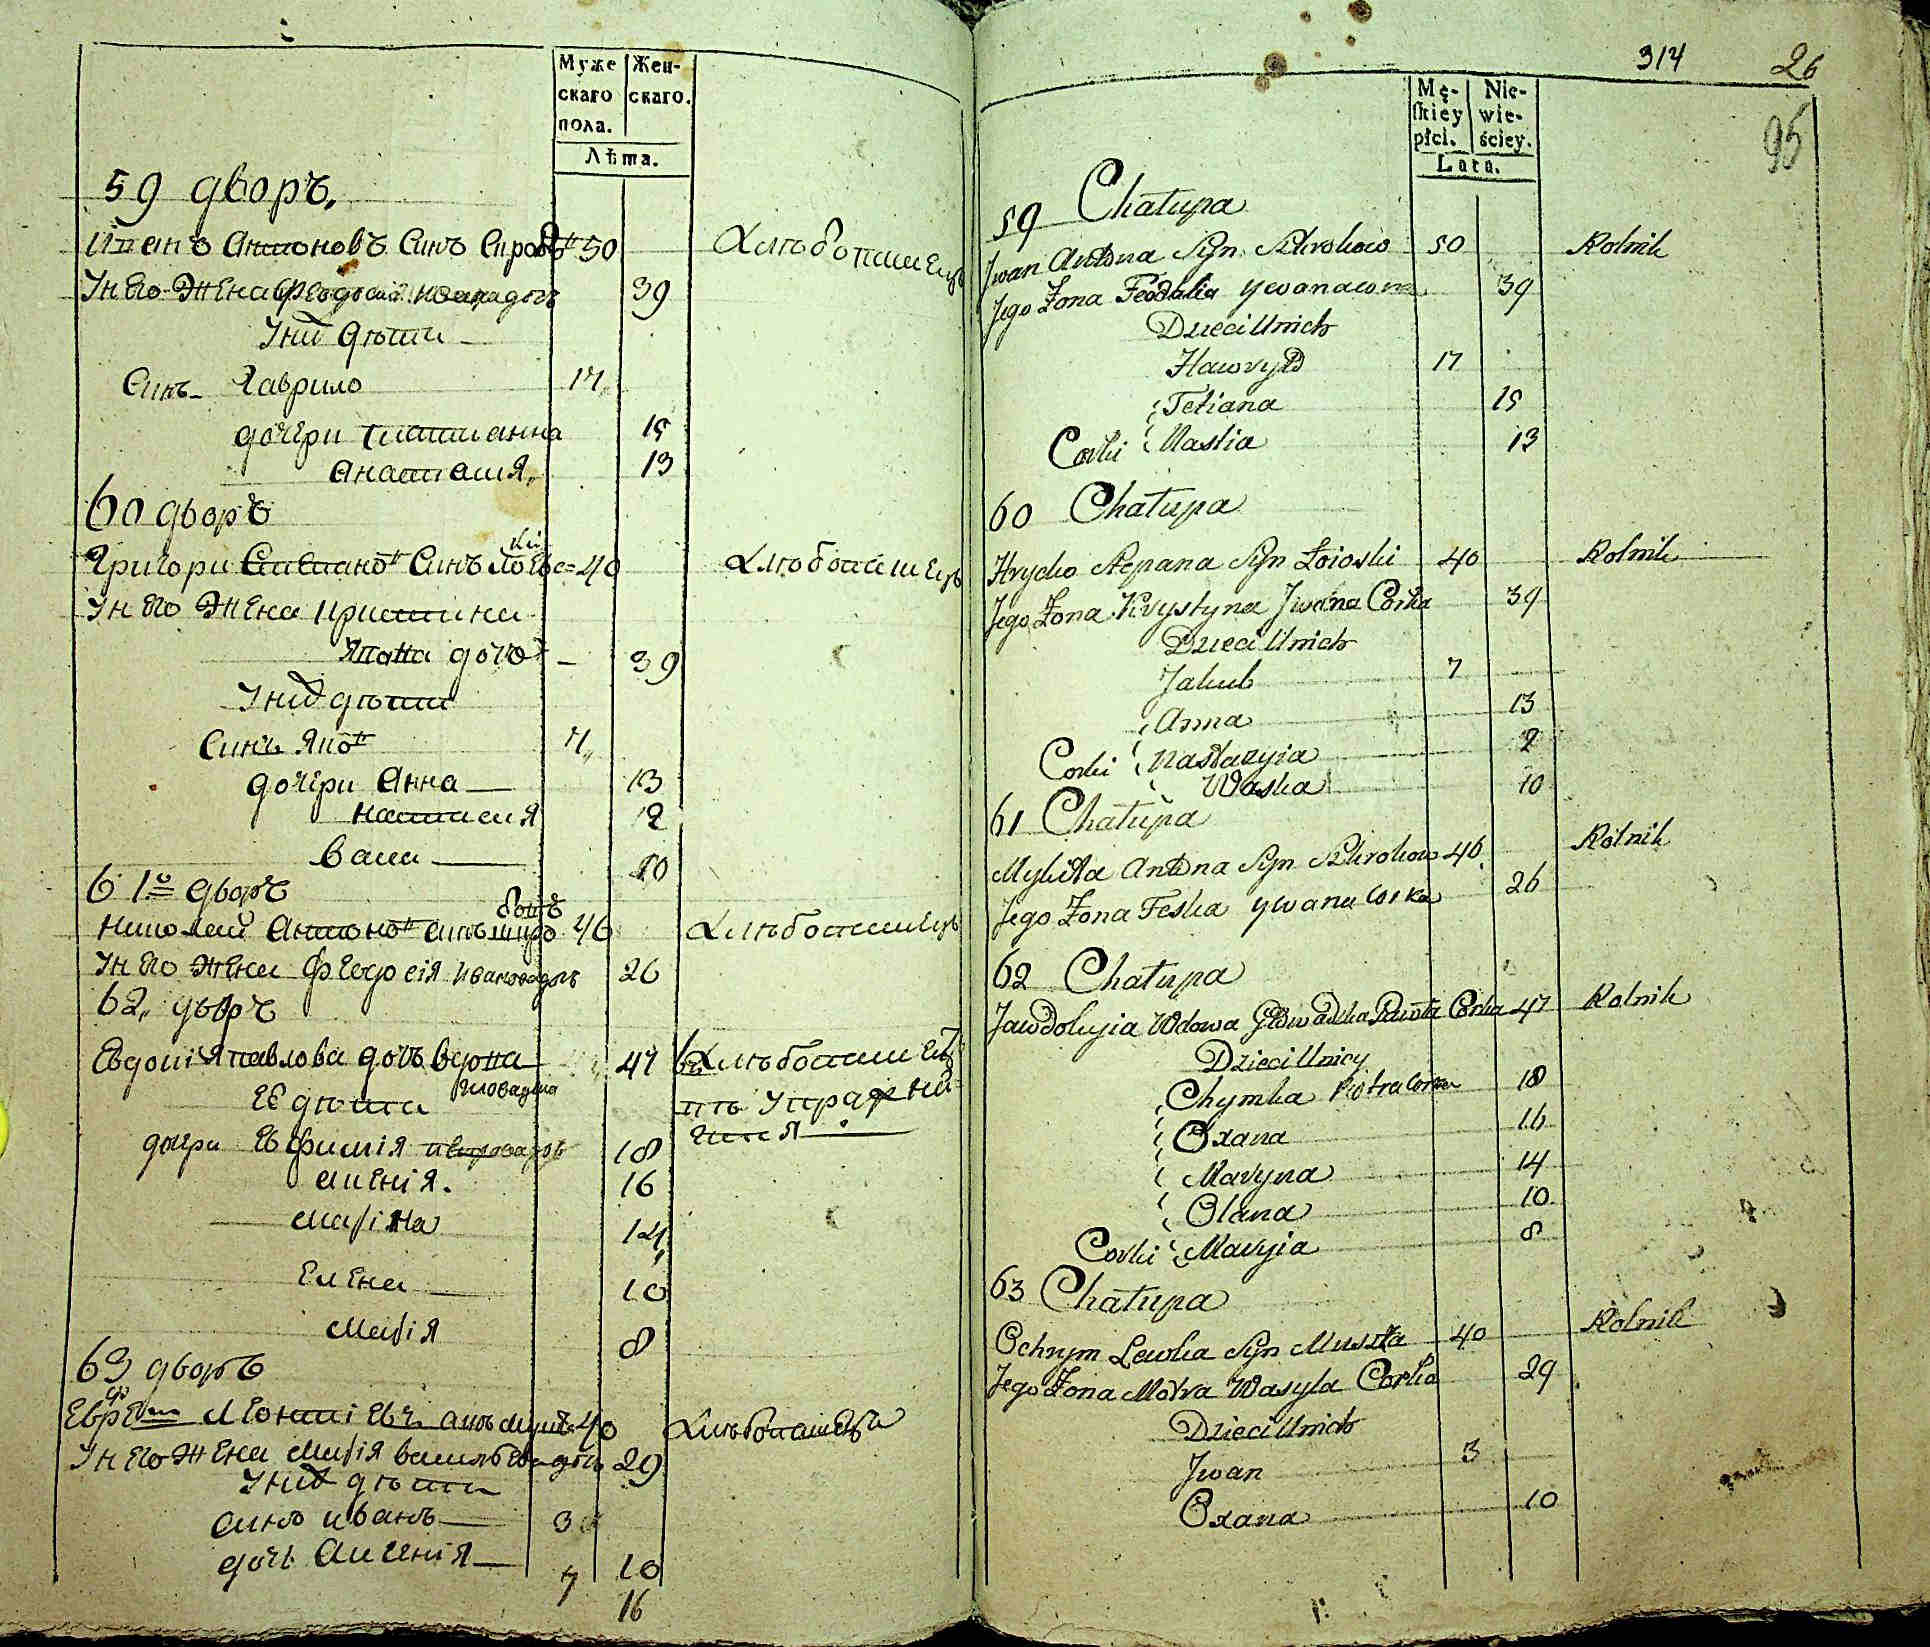 Муже Жен-
скаго скаго.
пола.
Лѣта.
59 дворъ.
Иванъ Антоновъ Синъ 50 Хлѣбопашецъ
У него Жена Феодосія 39
У них дѣти
Синъ Гаврило 17
дочери Татианна 15
Анастасия 13
60 дворъ
Григори Синъ 40 Хлѣбопашецъ
У него Жена Христина
дочь 39
У них дѣти
Синъ Яковъ 7
дочери Анна 13
Настасия 12
Васса 10
61й дворъ
Николай Антоновъ синъ 46 Хлѣбопашецъ
У него Жена Феодосія Ивановадочь 26
62 дворъ
Евдокия Павлова дочь вдова 47 въ Хлѣбопашествѣ
Ее дѣти Гловацка упражня
дочери Евфимія Петровадочь 18
Ксенія. 16
Марина 14
Елена 10
Марія 8
63 дворъ
Ефремъ Леонтіевъ синъ 40 Хлѣбопашецъ
У него Жена Марія Васильевадочь 29
У них дѣти
синъ иванъ 3
дочь Ксенія 10
7 16
314 26
95
Mę- Nie-
skiey wie-
płci. ściey.
Lata.
59 Chałupa
Jwan Antona Syn Skrokow 50 Rolnik
Jego Żona Feodosia Ywanowna 39
Dzieci Unich
Hawryło 17
Tetiana 15
Corki Nastia 13
60 Chałupa
Hrycko Stepana Syn Łoioski 40 Rolnik
Jego Żona Krystyna Jwana Corka 39
Dzieci Unich
Jakub 7
Anna 13
Corki Nastazyia 12
Waska 10
61 Chałupa
Mykita Antona Syn Skrokow 46 Rolnik
Jego Żona Feska Ywana Corka 26
62 Chałupa
Jawdokyia Wdowa Głowacka Pawła Corka 47 Rolnik
Dzieci Unicy
Chymka Piotra Corka 18
Oxana 16
Maryna 14
Olana 10
Corki Maryia 8
63 Chałupa
Ochrym Lewka Syn Muszka 40 Rolnik
Jego Żona Motra Wasyla Corka 29
Dzieci Unich
Jwan 3
Oxana 10